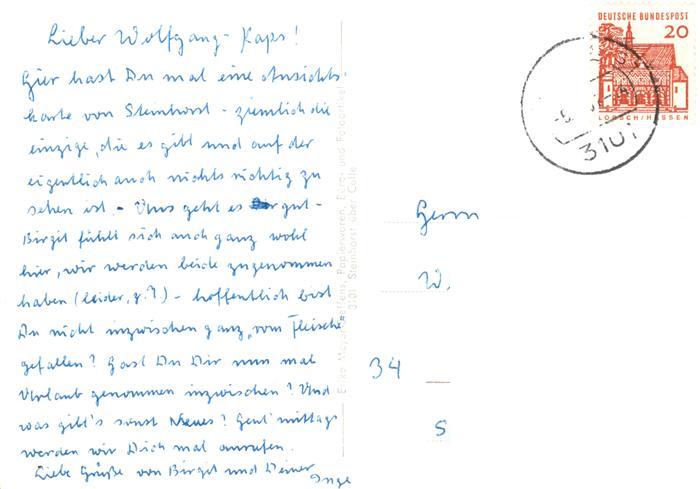 Lieber Wolfgang-Kaps!
Hier hast Du mal eine Ansichts-
karte von Steinhorst - ziemlich die
einzige, die es gibt und auf der
eigentlich auch nichts richtig zu
sehen ist. - Uns geht es gut -
Birgit fühlt sich auch ganz wohl
hier, wir werden beide zugenommen
haben (leider, g.?) - hoffentlich bist
Du nicht inzwischen ganz "vom Fleische
gefallen? Hast Du Dir nun mal
Urlaub genommen inzwischen? Und
was gibt's sonst Neues? Heut' mittags
werden wir Dich mal anrufen.
Liebe Grüße von Birgit und Deiner
Inge
Papierwaren, Büro- und Fotoartikel
3101 Steinhorst über Celle
DEUTSCHE BUNDESPOST
20
LORSCH/HESSEN
3101
Herrn
W.
34
S